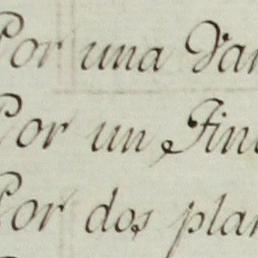 Por una Var
Por un Fin
Por dos plan